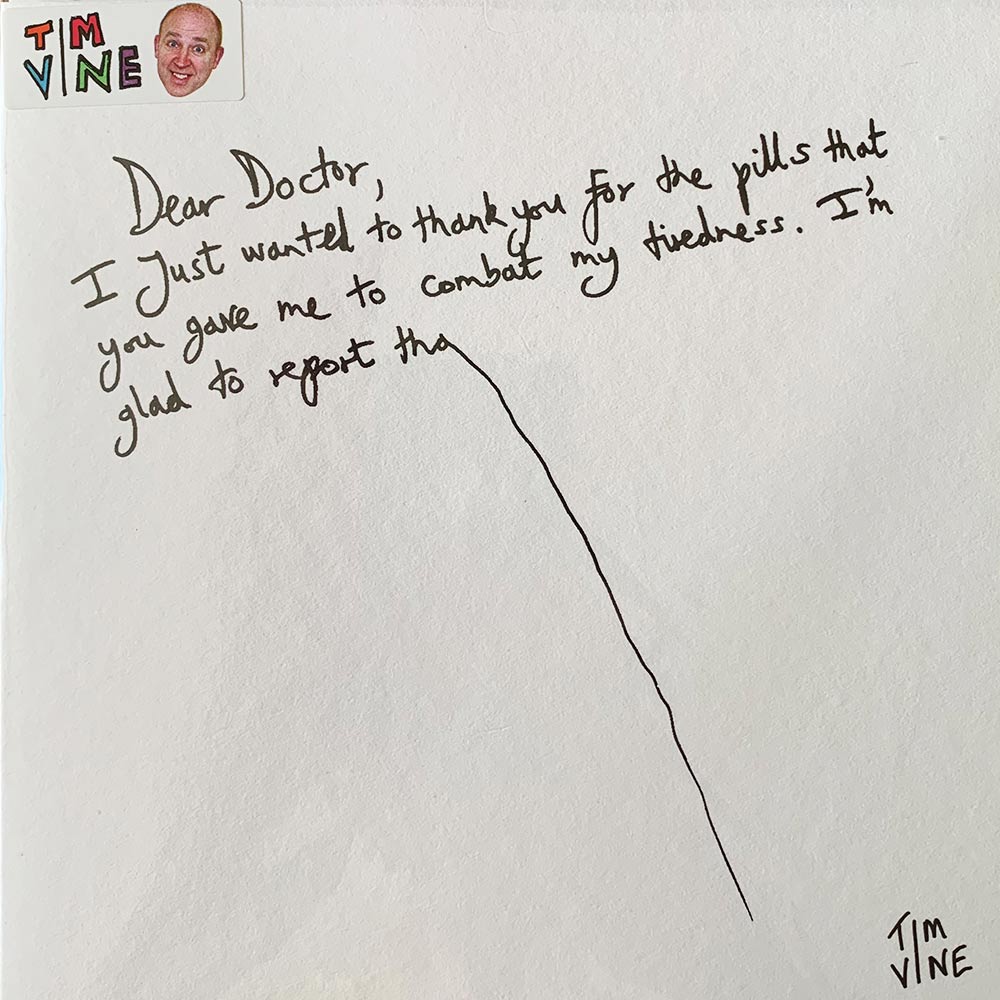 TIM
VINE
Dear Doctor,
I Just wanted to thank you for the pills that
you gave me to combat my tiredness. I'm
glad to report tha
TIM
VINE